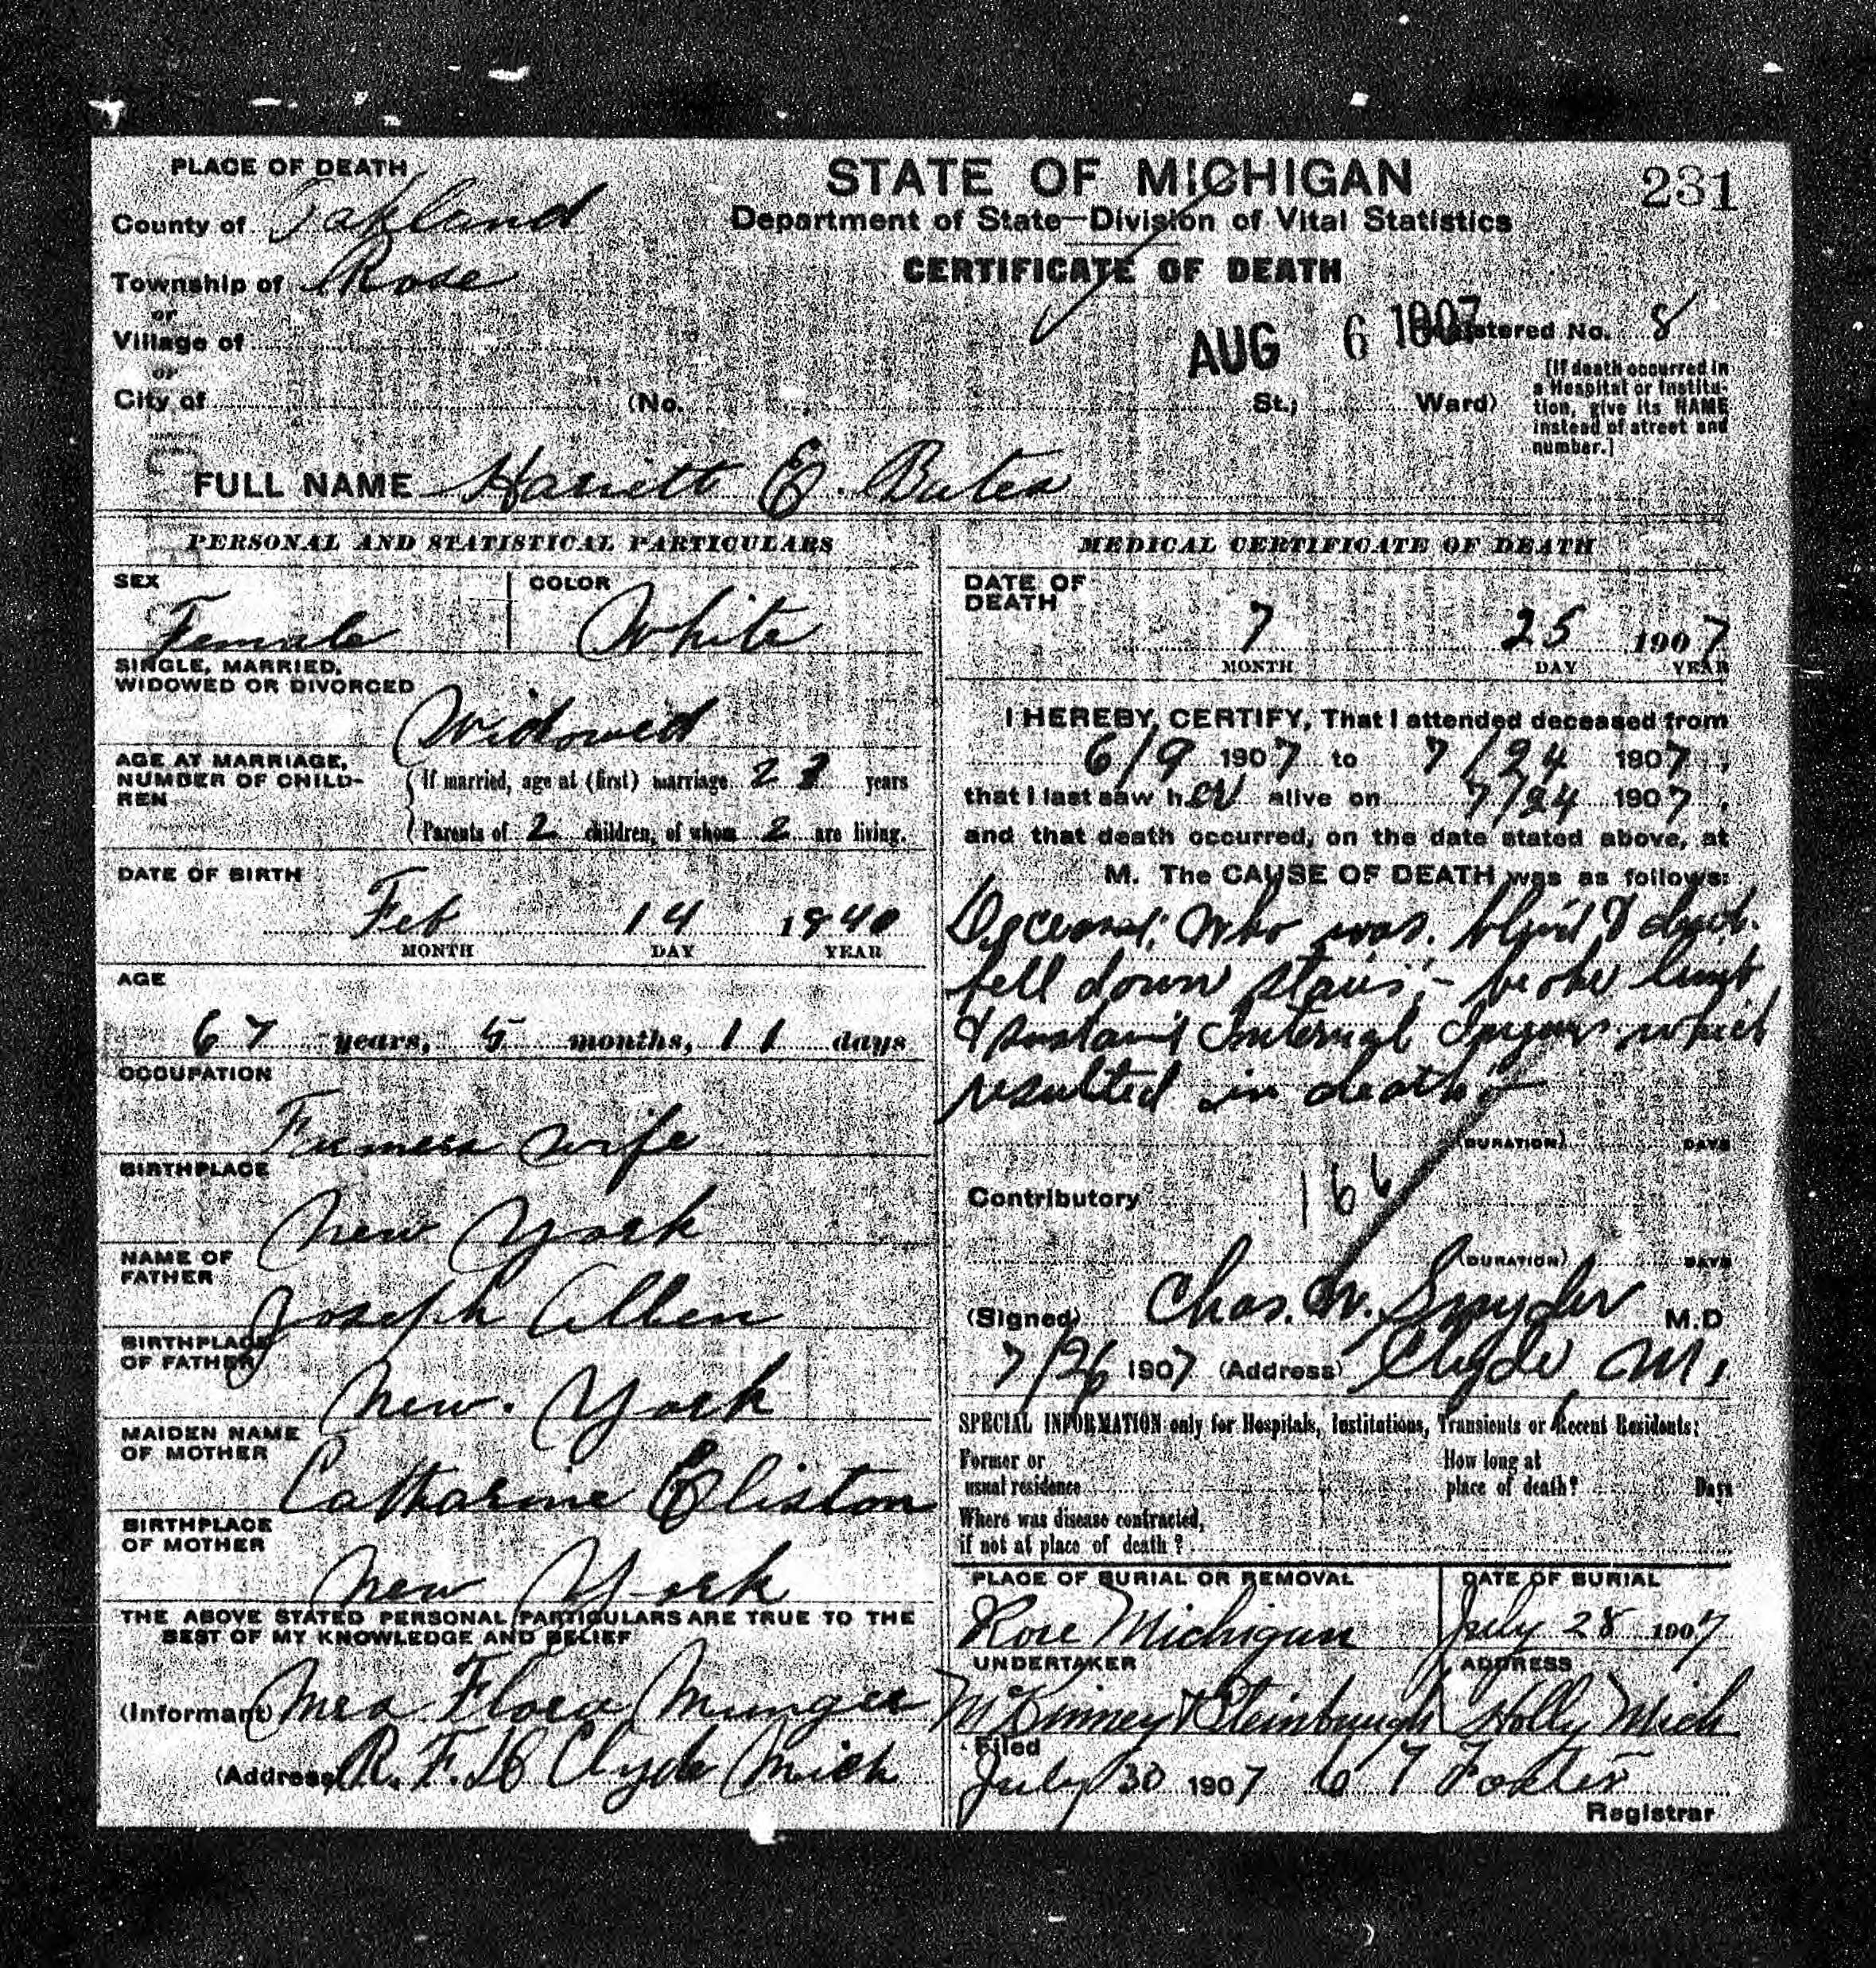 PLACE OF DEATH
STATE OF MICHIGAN
231
County of Oakland
Department of State—Division of Vital Statistics
Township of Rose
CERTIFICATE OF DEATH
or
Village of
AUG 6 1907
Registered No. 8
or
City of (No. St.; Ward)
[If death occurred in
a Hospital or Institu-
tion, give its NAME
instead of street and
number.]
FULL NAME Harriett E. Bates
PERSONAL AND STATISTICAL PARTICULARS
SEX
Female
COLOR
White
SINGLE, MARRIED,
WIDOWED OR DIVORCED
Widowed
AGE AT MARRIAGE,
NUMBER OF CHILD-
REN
(If married, age at (first) marriage 23 years
(Parents of 2 children, of whom 2 are living.
DATE OF BIRTH
Feb 14 1840
MONTH DAY YEAR
AGE
67 years, 5 months, 11 days
OCCUPATION
Farmers wife
BIRTHPLACE
New York
NAME OF
FATHER
Joseph Allen
BIRTHPLACE
OF FATHER
New York
MAIDEN NAME
OF MOTHER
Catharine Eliston
BIRTHPLACE
OF MOTHER
New York
THE ABOVE STATED PERSONAL PARTICULARS ARE TRUE TO THE
BEST OF MY KNOWLEDGE AND BELIEF
(Informant) Mrs Flora Munger
(Address) R. F. D Clyde Mich
MEDICAL CERTIFICATE OF DEATH
DATE OF
DEATH
7 25 1907
MONTH DAY YEAR
I HEREBY CERTIFY, That I attended deceased from
6/9 1907 to 7/24 1907,
that I last saw her alive on 7/24 1907,
and that death occurred, on the date stated above, at
M. The CAUSE OF DEATH was as follows:
Deceased, who was blind & deaf.
fell down stairs,- broke limb
& sustained Internal Injuries which
resulted in death.-
(DURATION) DAYS
Contributory 166
(DURATION) DAYS
(Signed) Chas. W. Snyder M.D
7/26 1907 (Address) Clyde, M.
SPECIAL INFORMATION only for Hospitals, Institutions, Transients or Recent Residents:
Former or
usual residence
How long at
place of death? Days
Where was disease contracted,
if not at place of death?
PLACE OF BURIAL OR REMOVAL
Rose Michigan
DATE OF BURIAL
July 28 1907
UNDERTAKER
McKinney & Steinbaugh
ADDRESS
Holly Mich
Filed
July 30 1907 Foster
Registrar